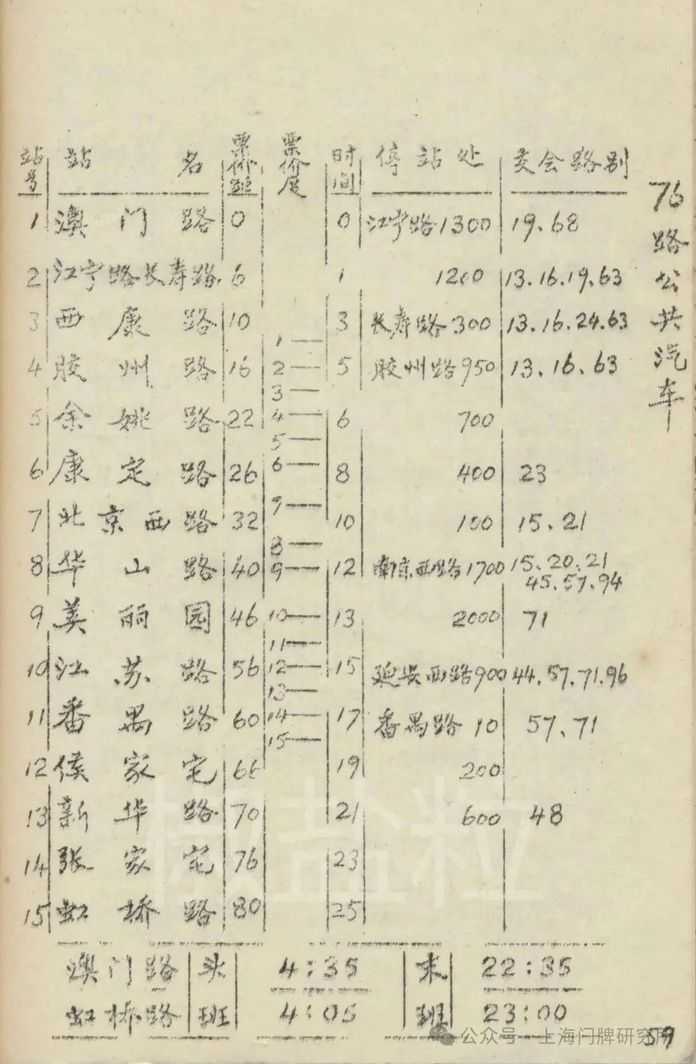 76路公共汽车
站号 站名 票价距 票价尺 时间 停站处 交会路别
1 澳门路 0 0 江宁路1300 19.68
2 江宁路长寿路 6 1 1200 13.16.19.63
3 西康路 10 3 长寿路300 13.16.24.63
1
4 胶州路 16 2 5 胶州路950 13.16.63
3
5 余姚路 22 4 6 700
5
6 康定路 26 6 8 400 23
7
7 北京西路 32 10 100 15.21
8
8 华山路 40 9 12 南京西路1700 15.20.21
45.57.94
9 美丽园 46 10 13 2000 71
11
10 江苏路 56 12 15 延安西路900 44.57.71.96
13
11 番禺路 60 14 17 番禺路10 57.71
15
12 侯家宅 66 19 200
13 新华路 70 21 600 48
14 张家宅 76 23
15 虹桥路 80 25
澳门路 头 4:35 末 22:35
虹桥路 班 4:05 班 23:00
公众号·上海门牌研究所
59